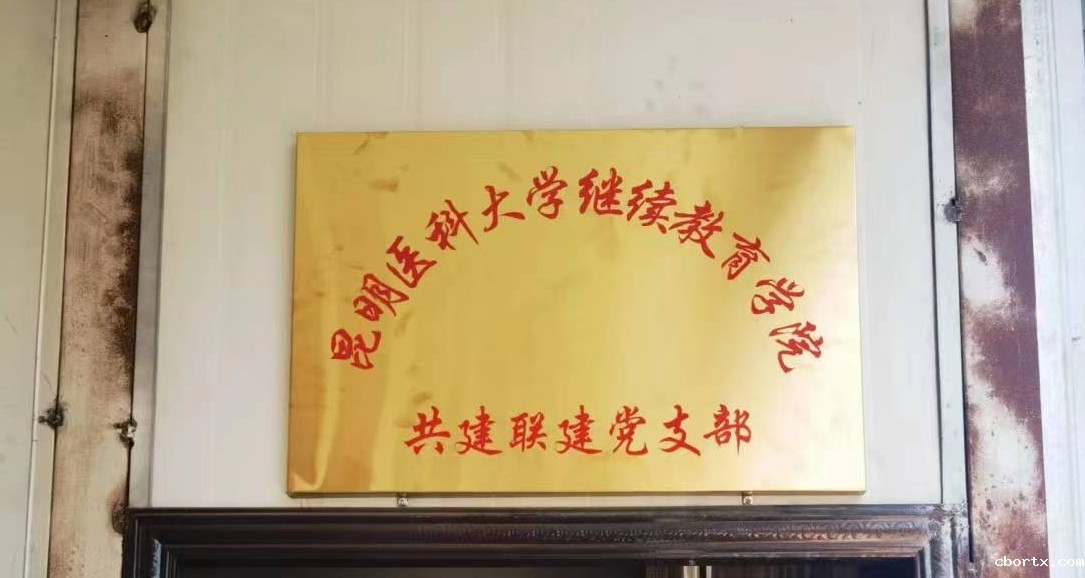 昆明医科大学继续教育学院
共建联建党支部
cbortx.com